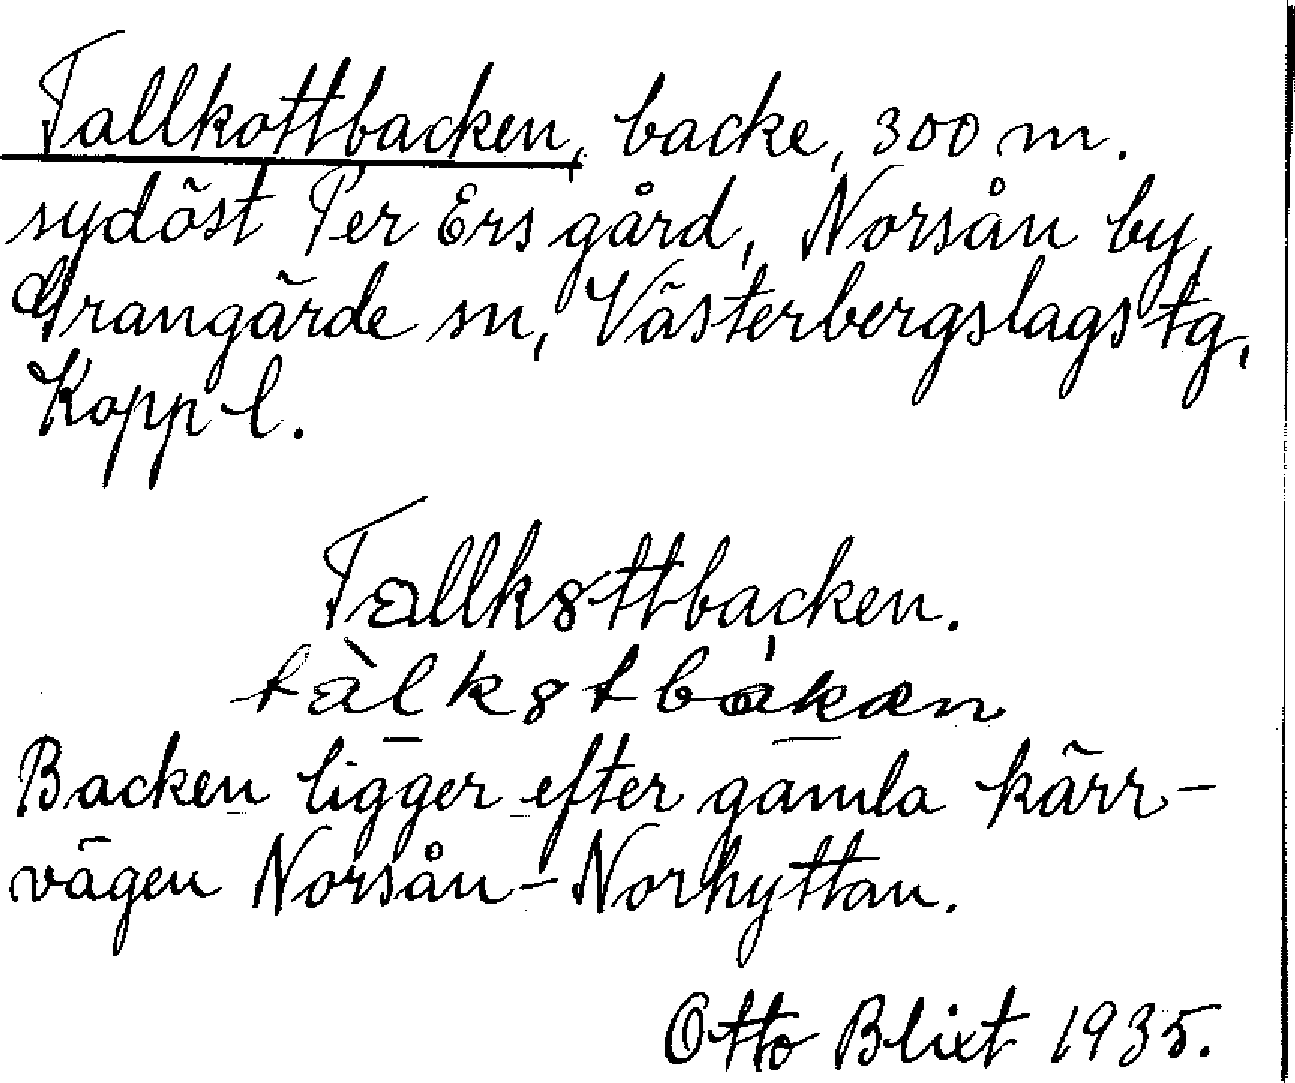 Tallkottbacken, backe, 300 m.
sydöst Per Ers gård, Norsån by,
Grangärde sn, Västerbergslags tg,
Kopp l.
Tallkottbacken.
Backen ligger efter gamla kärr-
vägen Norsån-Norhyttan.
Otto Blixt 1935.